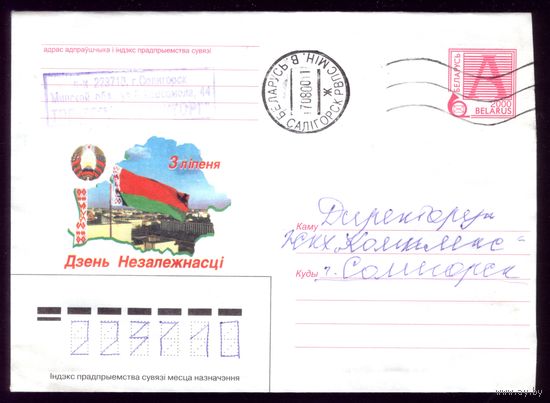 адрас адпраўшчыка і індэкс прадпрыемства сувязі
223710, г. Солигорск
Минской обл. 44
БЕЛАРУСЬ. В. МІН.
170800
Ж
САЛІГОРСК РВПС
БЕЛАРУСЬ
A
2000
BELARUS
3 ліпеня
Дзень Незалежнасці
Каму Директору
ЖКХ „Комплекс"
Куды г. Солигорск
223710
Індэкс прадпрыемства сувязі месца назначэння
www.ay.by